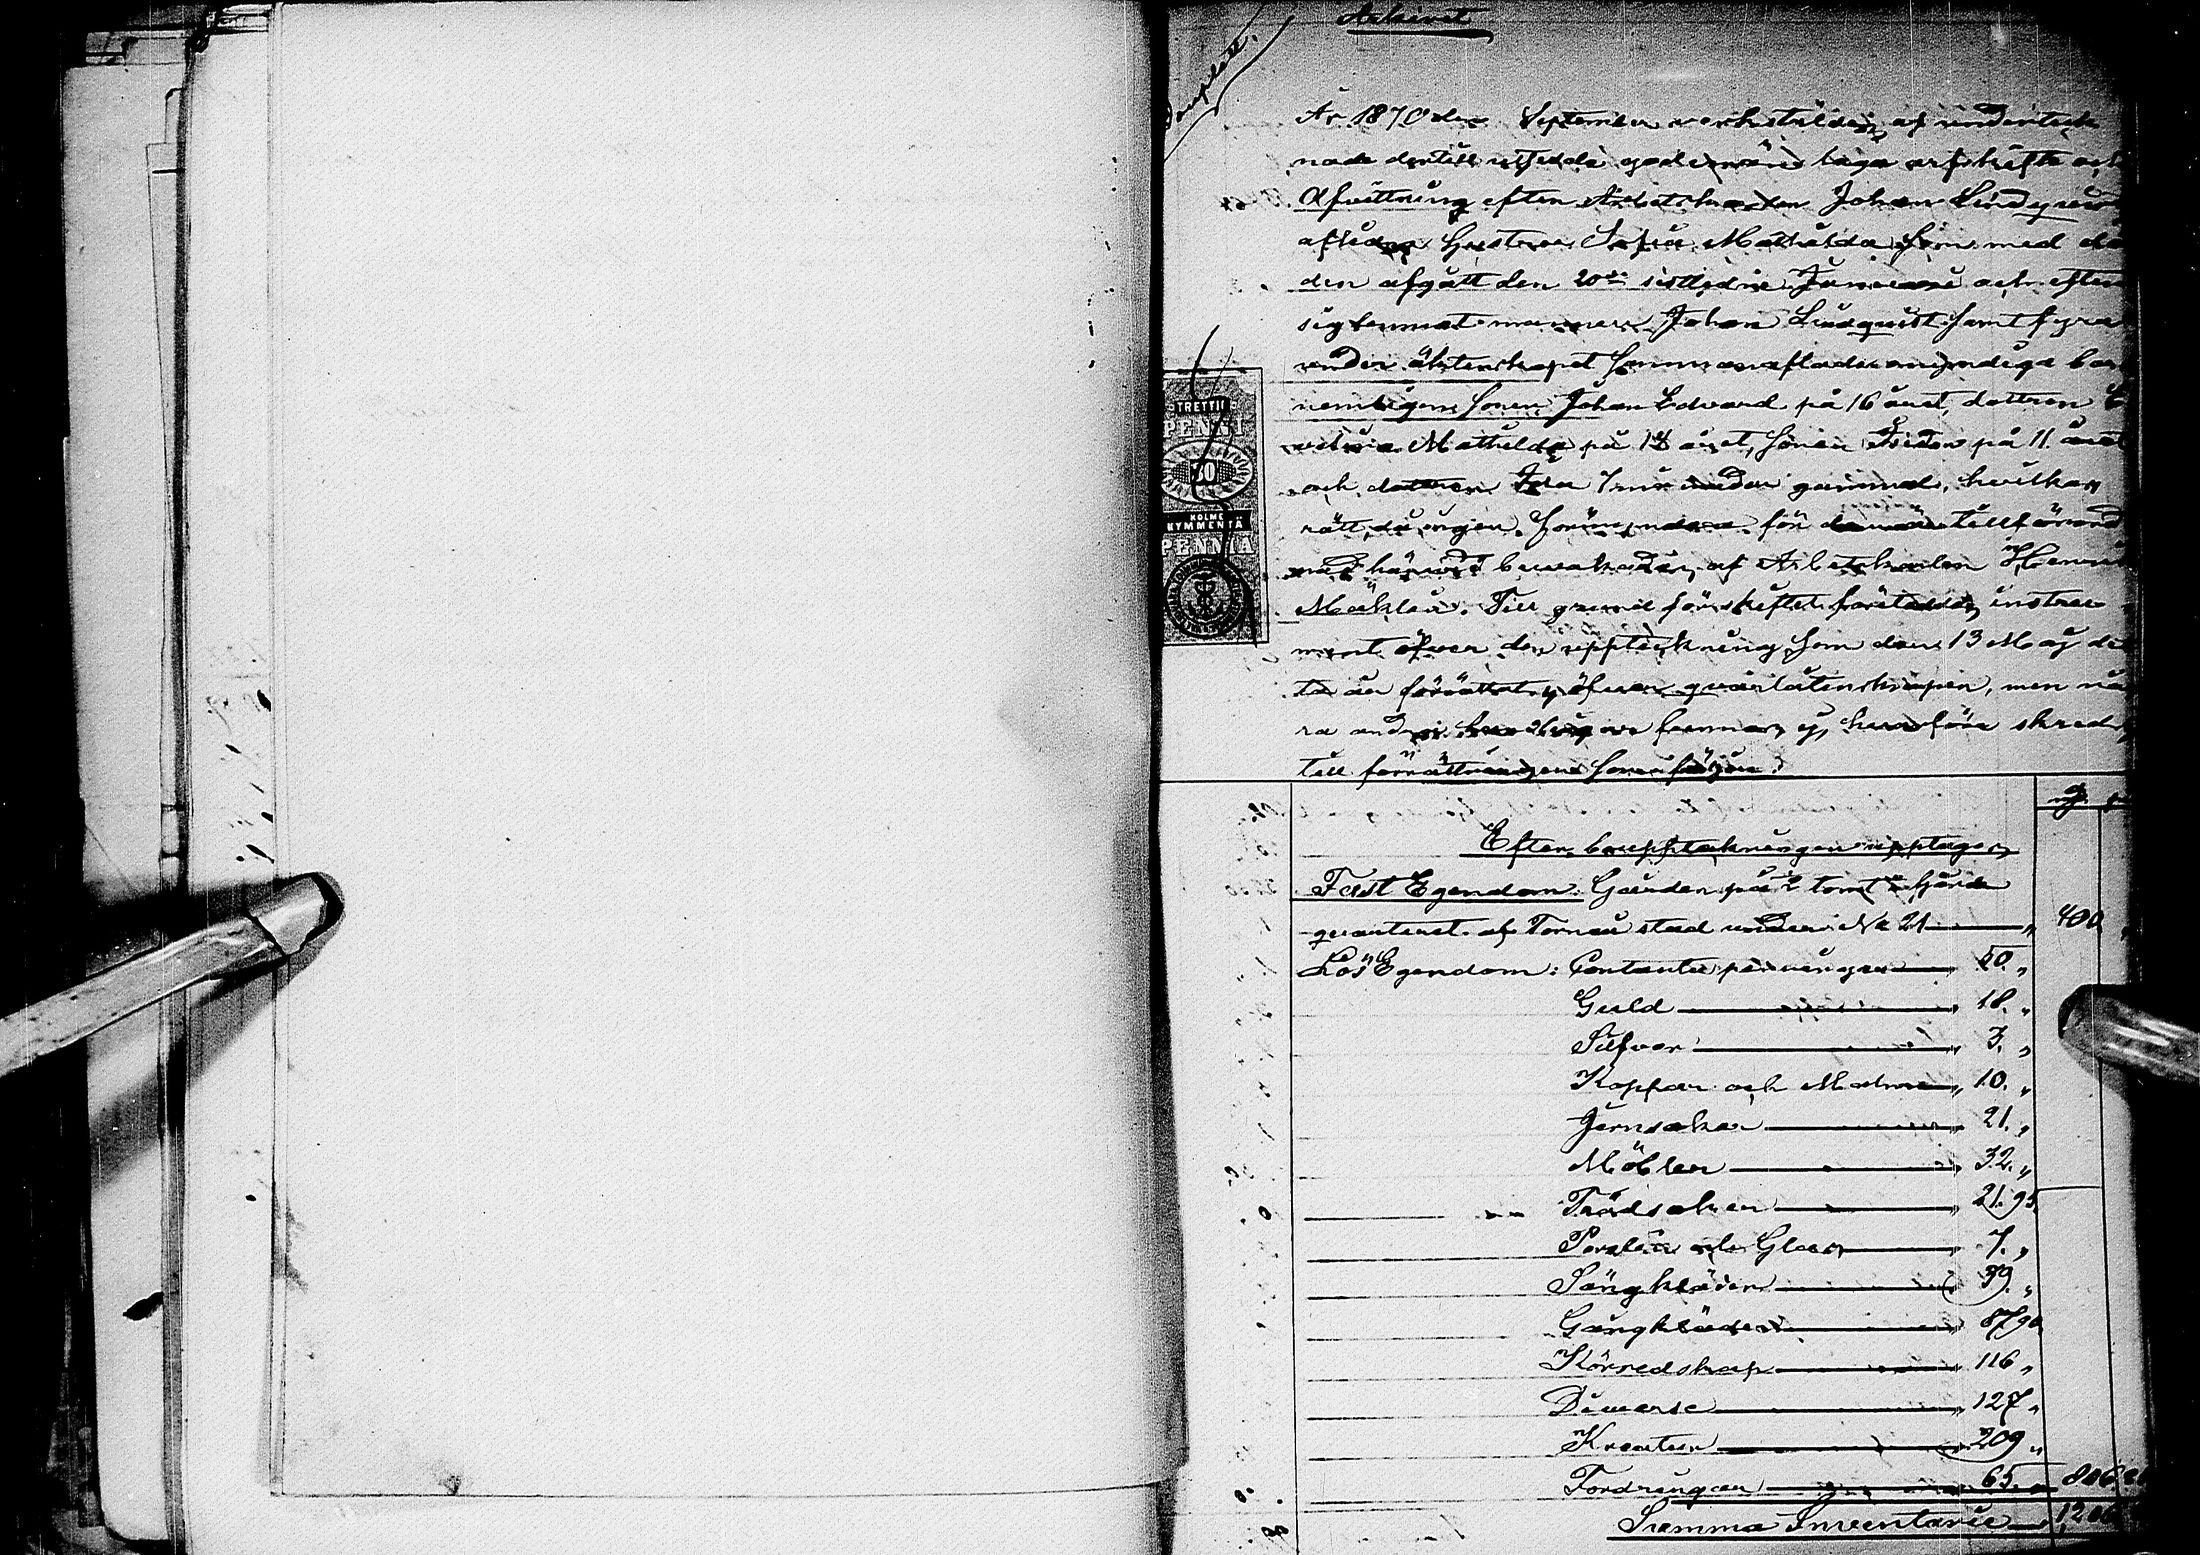 Arkivet
Duplett.
År 1870 den September verkstäldes af underteck
nade dertill utsedda godemän laga arfskifte och
Afvittring efter Arbetskarlen Johan Lindqvists
aflidna Hustru Sofia Mathilda som med dö
den afgått den 20de sistlidne Januari och efter
sig lemnat mannen Johan Lindquist samt fyra
under äktenskapet sammanaflade omyndiga barn
nemligen Sonen Johan Edvard på 16 året, dottren
Mathilda på året, Sonen på 11 året
och dottren Ida 7 månader gammal, hvilkas
rätt, då ingen Förmyndare för
bevakades af Arbetskarlen Henrik
Mäkelä. Till grund för skiftet företeddes instru
ment öfver den uppteckning som den 13 Maj det
ta år förrättats öfver qvarlåtenskapen, men nå
ra andra handlingar funnos ej, hvarföre skreds
till förrättningen som följer:
Efter bouppteckningen upptages
Fast Egendom: Gården på tomt i fjärde
quarteret af Torneå stad under No 21 „ 400 „
Lös Egendom: Contanta penningar „ 50. „
Guld „ 18. „
Silfver „ 3. „
Koppar och Malm „ 10. „
Jernsaker „ 21. „
Möbler „ 32. „
Trädsaker „ 21. 95
Porslin och Glas „ 7. „
Sängkläder „ 39. „
Gångkläder „ 87 90
Körredskap „ 116 „
Diverse „ 127 „
Kreatur „ 209 „
Fordringar 65 „
Summa Inventarie
STRETTII
PENNI
30
KOLME
KYMMENTÄ
PENNIÄ